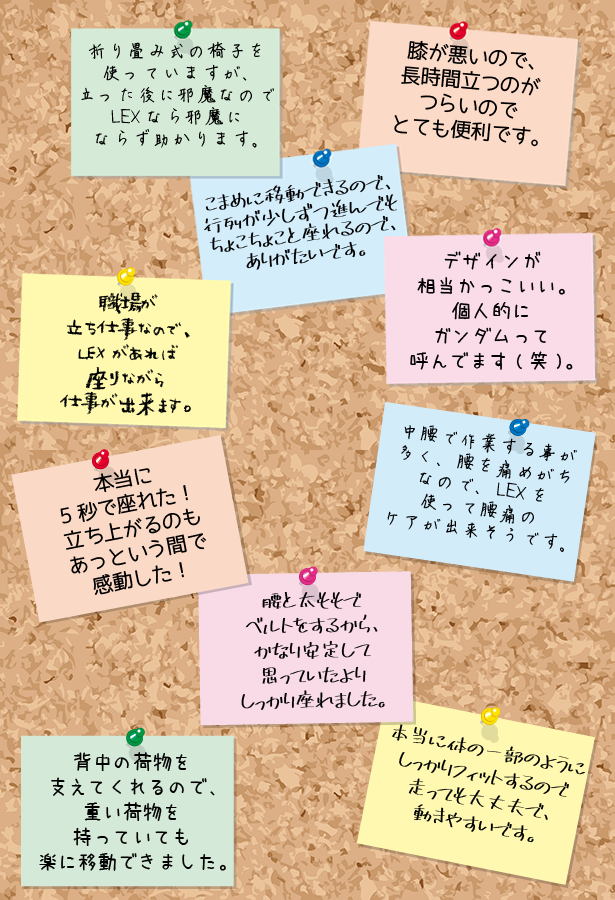 折り畳み式の椅子を
使っていますが、
立った後に邪魔なので
LEXなら邪魔に
ならず助かります。
膝が悪いので、
長時間立つのが
つらいので
とても便利です。
こまめに移動できるので、
行列が少しずつ進んでも
ちょこちょこと座れるので、
ありがたいです。
デザインが
相当かっこいい。
個人的に
ガンダムって
呼んでます(笑)。
職場が
立ち仕事なので、
LEXがあれば
座りながら
仕事が出来ます。
中腰で作業する事が
多く、腰を痛めがち
なので、LEXを
使って腰痛の
ケアが出来そうです。
本当に
5秒で座れた!
立ち上がるのも
あっという間で
感動した!
腰と太ももで
ベルトをするから、
かなり安定して
思っていたより
しっかり座れました。
本当に体の一部のように
しっかりフィットするので
走っても大丈夫で、
動きやすいです。
背中の荷物を
支えてくれるので、
重い荷物を
持っていても
楽に移動できました。